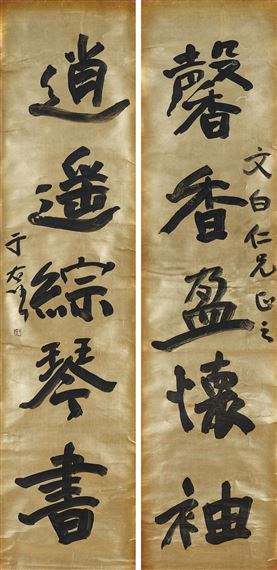 馨香盈懷袖
文白仁兄正之
逍遙綜琴書
于右任